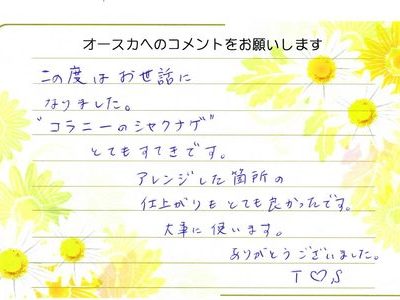 オースカへのコメントをお願いします
この度は お世話に
なりました。
"コラニーのシャクナゲ"
とても すてきです。
アレンジした箇所の
仕上がりも とても 良かったです。
大事に 使います。
ありがとう ございました。
T♡S